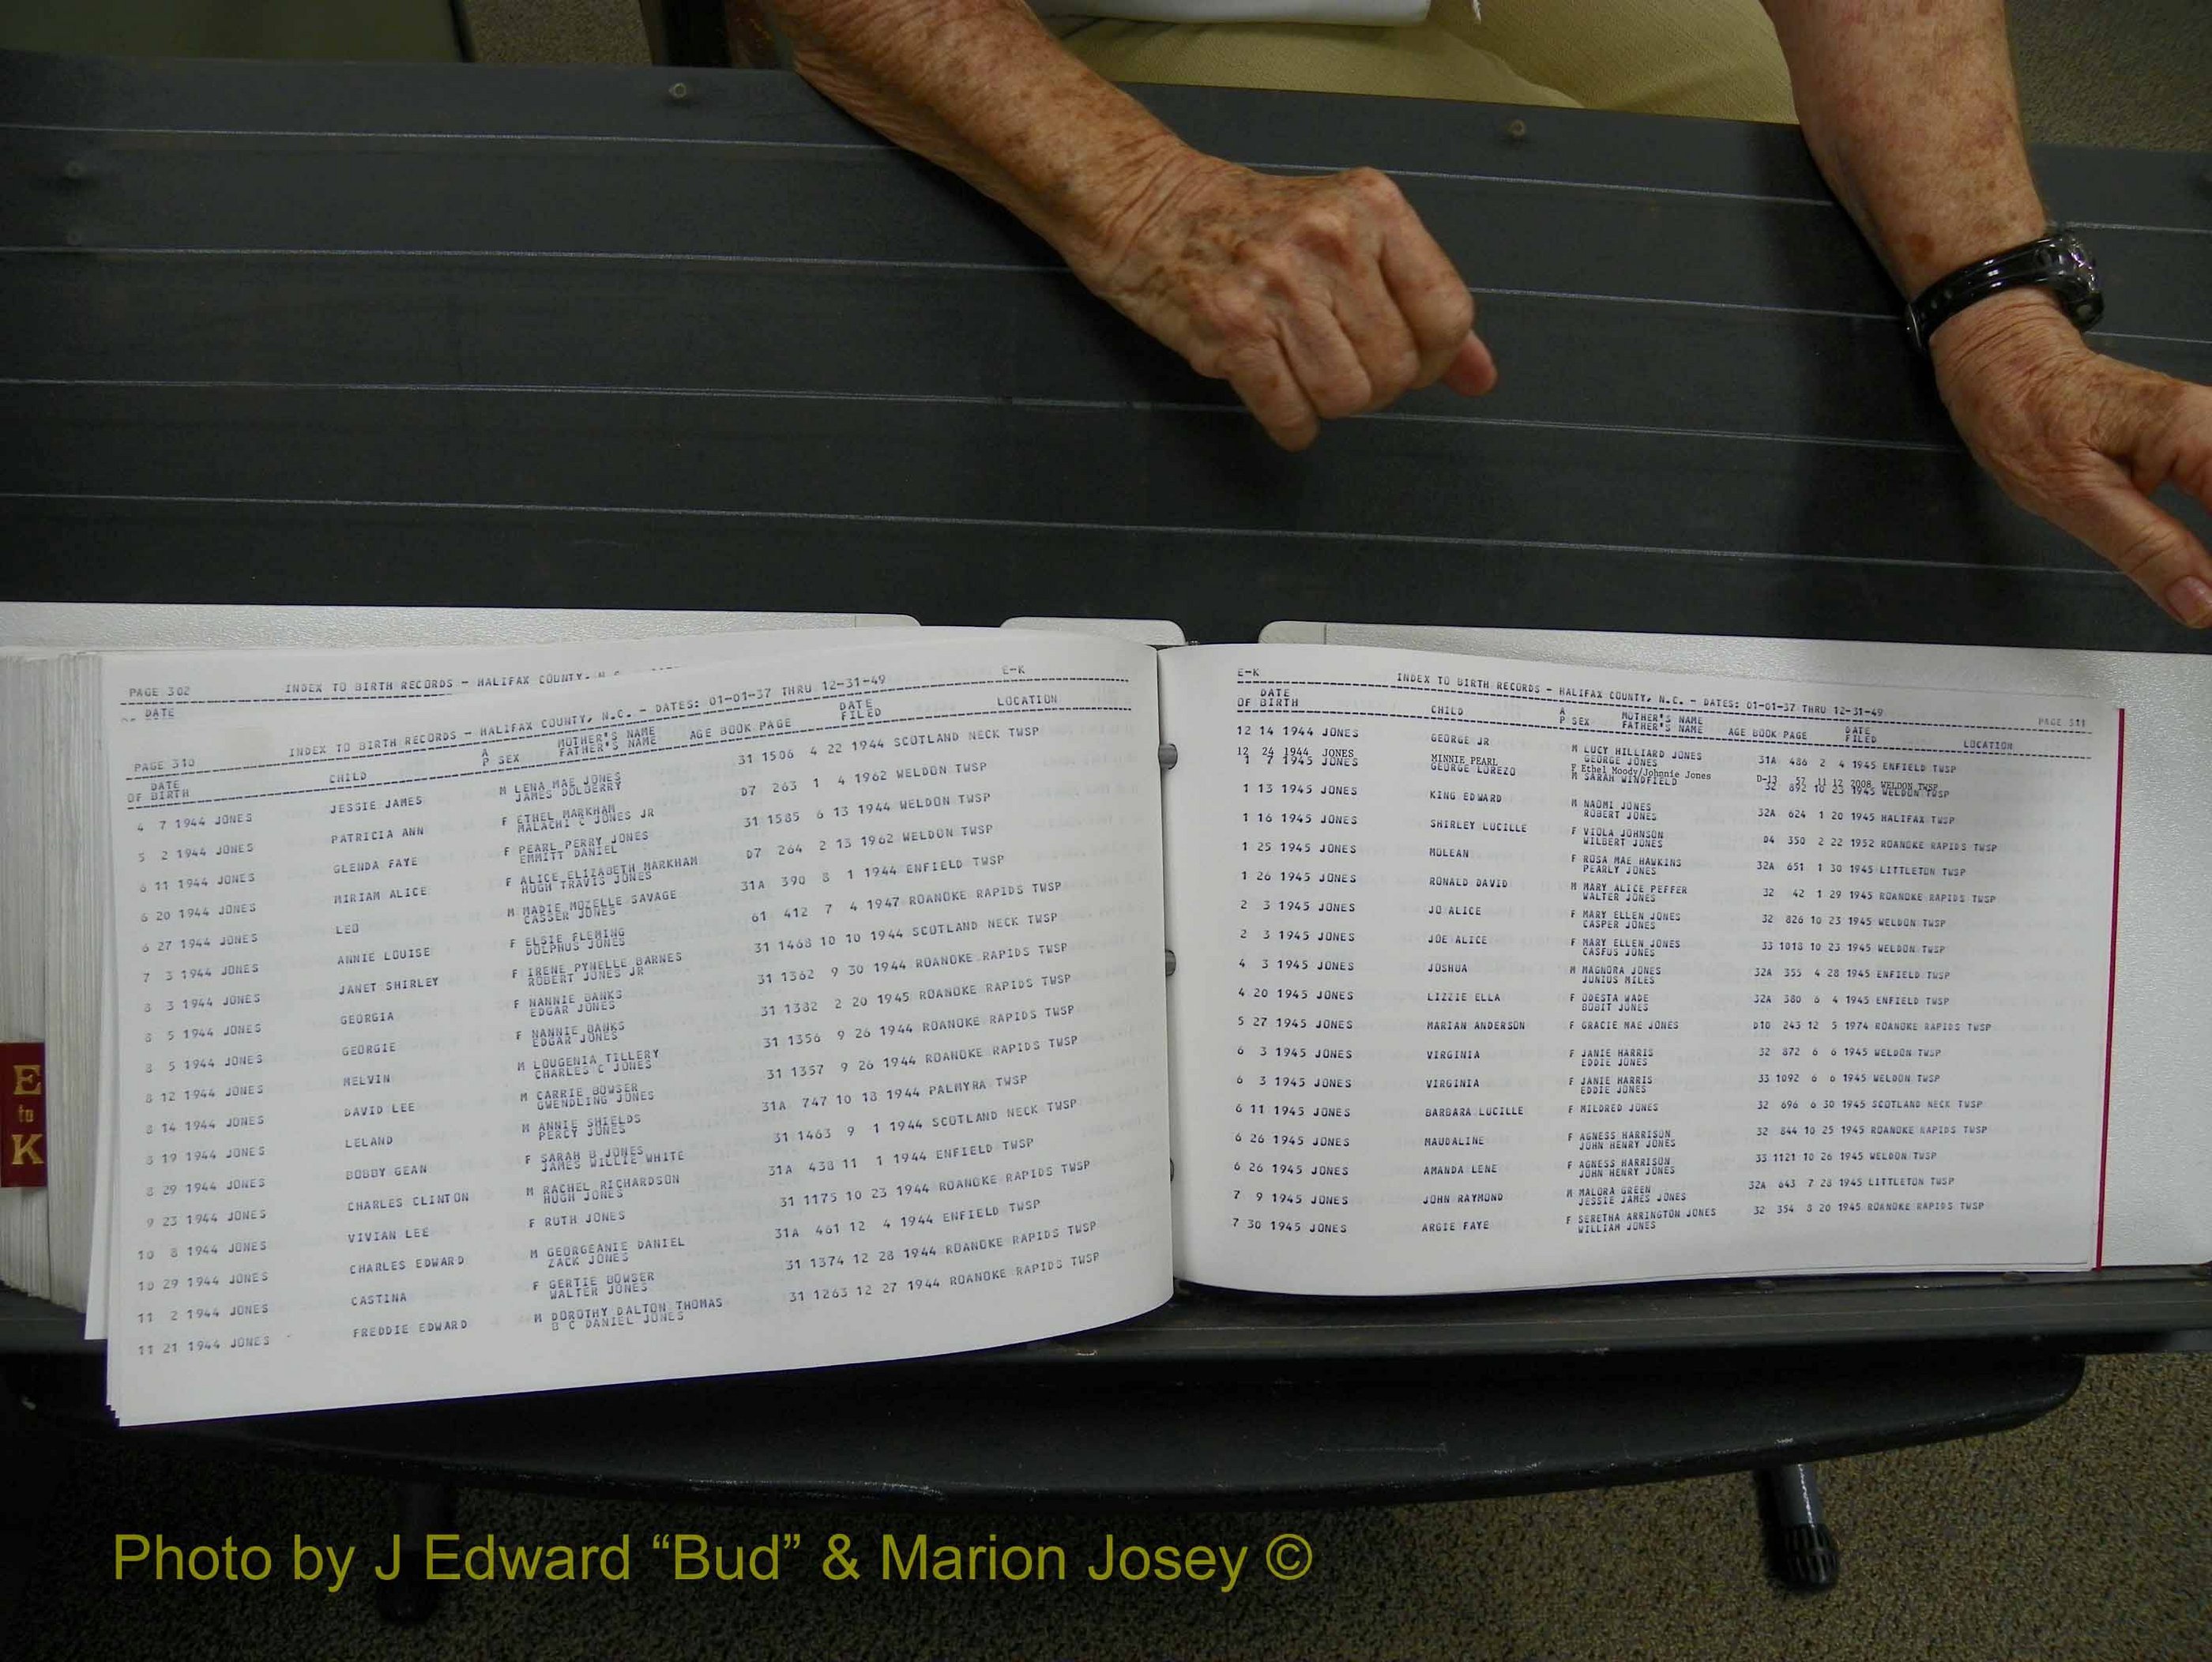 PAGE 302 INDEX TO BIRTH RECORDS - HALIFAX COUNTY, N.C. E-K
DATE
INDEX TO BIRTH RECORDS - HALIFAX COUNTY, N.C. - DATES: 01-01-37 THRU 12-31-49
PAGE 310
DATE OF BIRTH CHILD A P SEX MOTHER'S NAME FATHER'S NAME AGE BOOK PAGE DATE FILED LOCATION
4 7 1944 JONES JESSIE JAMES M LENA MAE JONES 31 1506 4 22 1944 SCOTLAND NECK TWSP
JAMES DOLBERRY
5 2 1944 JONES PATRICIA ANN F ETHEL MARKHAM D7 263 1 4 1962 WELDON TWSP
MALACHI C JONES JR
6 11 1944 JONES GLENDA FAYE F PEARL PERRY JONES 31 1585 6 13 1944 WELDON TWSP
EMMITT DANIEL
6 20 1944 JONES MIRIAM ALICE F ALICE ELIZABETH MARKHAM D7 264 2 13 1962 WELDON TWSP
HUGH TRAVIS JONES
6 27 1944 JONES LEO M MADIE MOZELLE SAVAGE 31A 390 8 1 1944 ENFIELD TWSP
CASSER JONES
7 3 1944 JONES ANNIE LOUISE F ELSIE FLEMING 61 412 7 4 1947 ROANOKE RAPIDS TWSP
DOLPHUS JONES
8 3 1944 JONES JANET SHIRLEY F IRENE PYNELLE BARNES 31 1468 10 10 1944 SCOTLAND NECK TWSP
ROBERT JONES JR
8 5 1944 JONES GEORGIA F NANNIE BANKS 31 1362 9 30 1944 ROANOKE RAPIDS TWSP
EDGAR JONES
8 5 1944 JONES GEORGIE F NANNIE BANKS 31 1382 2 20 1945 ROANOKE RAPIDS TWSP
EDGAR JONES
8 12 1944 JONES MELVIN M LOUGENIA TILLERY 31 1356 9 26 1944 ROANOKE RAPIDS TWSP
CHARLES C JONES
8 14 1944 JONES DAVID LEE M CARRIE BOWSER 31 1357 9 26 1944 ROANOKE RAPIDS TWSP
GWENDLING JONES
8 19 1944 JONES LELAND M ANNIE SHIELDS 31A 747 10 18 1944 PALMYRA TWSP
PERCY JONES
8 29 1944 JONES BOBBY GEAN F SARAH B JONES 31 1463 9 1 1944 SCOTLAND NECK TWSP
JAMES WILLIE WHITE
9 23 1944 JONES CHARLES CLINTON M RACHEL RICHARDSON 31A 438 11 1 1944 ENFIELD TWSP
HUGH JONES
10 8 1944 JONES VIVIAN LEE F RUTH JONES 31 1175 10 23 1944 ROANOKE RAPIDS TWSP
10 29 1944 JONES CHARLES EDWARD M GEORGEANIE DANIEL 31A 461 12 4 1944 ENFIELD TWSP
ZACK JONES
11 2 1944 JONES CASTINA F GERTIE BOWSER 31 1374 12 28 1944 ROANOKE RAPIDS TWSP
WALTER JONES
11 21 1944 JONES FREDDIE EDWARD M DOROTHY DALTON THOMAS 31 1263 12 27 1944 ROANOKE RAPIDS TWSP
B C DANIEL JONES
E
to
K
E-K INDEX TO BIRTH RECORDS - HALIFAX COUNTY, N.C. - DATES: 01-01-37 THRU 12-31-49 PAGE 311
DATE OF BIRTH CHILD A P SEX MOTHER'S NAME FATHER'S NAME AGE BOOK PAGE DATE FILED LOCATION
12 14 1944 JONES GEORGE JR M LUCY HILLIARD JONES 31A 486 2 4 1945 ENFIELD TWSP
GEORGE JONES
12 24 1944 JONES MINNIE PEARL F Ethel Moody/Johnnie Jones D-13 57 11 12 2008 WELDON TWSP
1 7 1945 JONES GEORGE LOREZO M SARAH WINDFIELD 32 892 10 23 1945 WELDON TWSP
1 13 1945 JONES KING EDWARD M NAOMI JONES 32A 624 1 20 1945 HALIFAX TWSP
ROBERT JONES
1 16 1945 JONES SHIRLEY LUCILLE F VIOLA JOHNSON D4 350 2 22 1952 ROANOKE RAPIDS TWSP
WILBERT JONES
1 25 1945 JONES MOLEAN F ROSA MAE HAWKINS 32A 651 1 30 1945 LITTLETON TWSP
PEARLY JONES
1 26 1945 JONES RONALD DAVID M MARY ALICE PEFFER 32 42 1 29 1945 ROANOKE RAPIDS TWSP
WALTER JONES
2 3 1945 JONES JO ALICE F MARY ELLEN JONES 32 826 10 23 1945 WELDON TWSP
CASPER JONES
2 3 1945 JONES JOE ALICE F MARY ELLEN JONES 33 1018 10 23 1945 WELDON TWSP
CASFUS JONES
4 3 1945 JONES JOSHUA M MAGNORA JONES 32A 355 4 28 1945 ENFIELD TWSP
JUNIUS MILES
4 20 1945 JONES LIZZIE ELLA F ODESTA WADE 32A 380 6 4 1945 ENFIELD TWSP
BOBIT JONES
5 27 1945 JONES MARIAN ANDERSON F GRACIE MAE JONES D10 243 12 5 1974 ROANOKE RAPIDS TWSP
6 3 1945 JONES VIRGINIA F JANIE HARRIS 32 872 6 6 1945 WELDON TWSP
EDDIE JONES
6 3 1945 JONES VIRGINIA F JANIE HARRIS 33 1092 6 6 1945 WELDON TWSP
EDDIE JONES
6 11 1945 JONES BARBARA LUCILLE F MILDRED JONES 32 696 6 30 1945 SCOTLAND NECK TWSP
6 26 1945 JONES MAUDALINE F AGNESS HARRISON 32 844 10 25 1945 ROANOKE RAPIDS TWSP
JOHN HENRY JONES
6 26 1945 JONES AMANDA LENE F AGNESS HARRISON 33 1121 10 26 1945 WELDON TWSP
JOHN HENRY JONES
7 9 1945 JONES JOHN RAYMOND M MALORA GREEN 32A 643 7 28 1945 LITTLETON TWSP
JESSIE JAMES JONES
7 30 1945 JONES ARGIE FAYE F SERETHA ARRINGTON JONES 32 354 8 20 1945 ROANOKE RAPIDS TWSP
WILLIAM JONES
Photo by J Edward “Bud” & Marion Josey ©